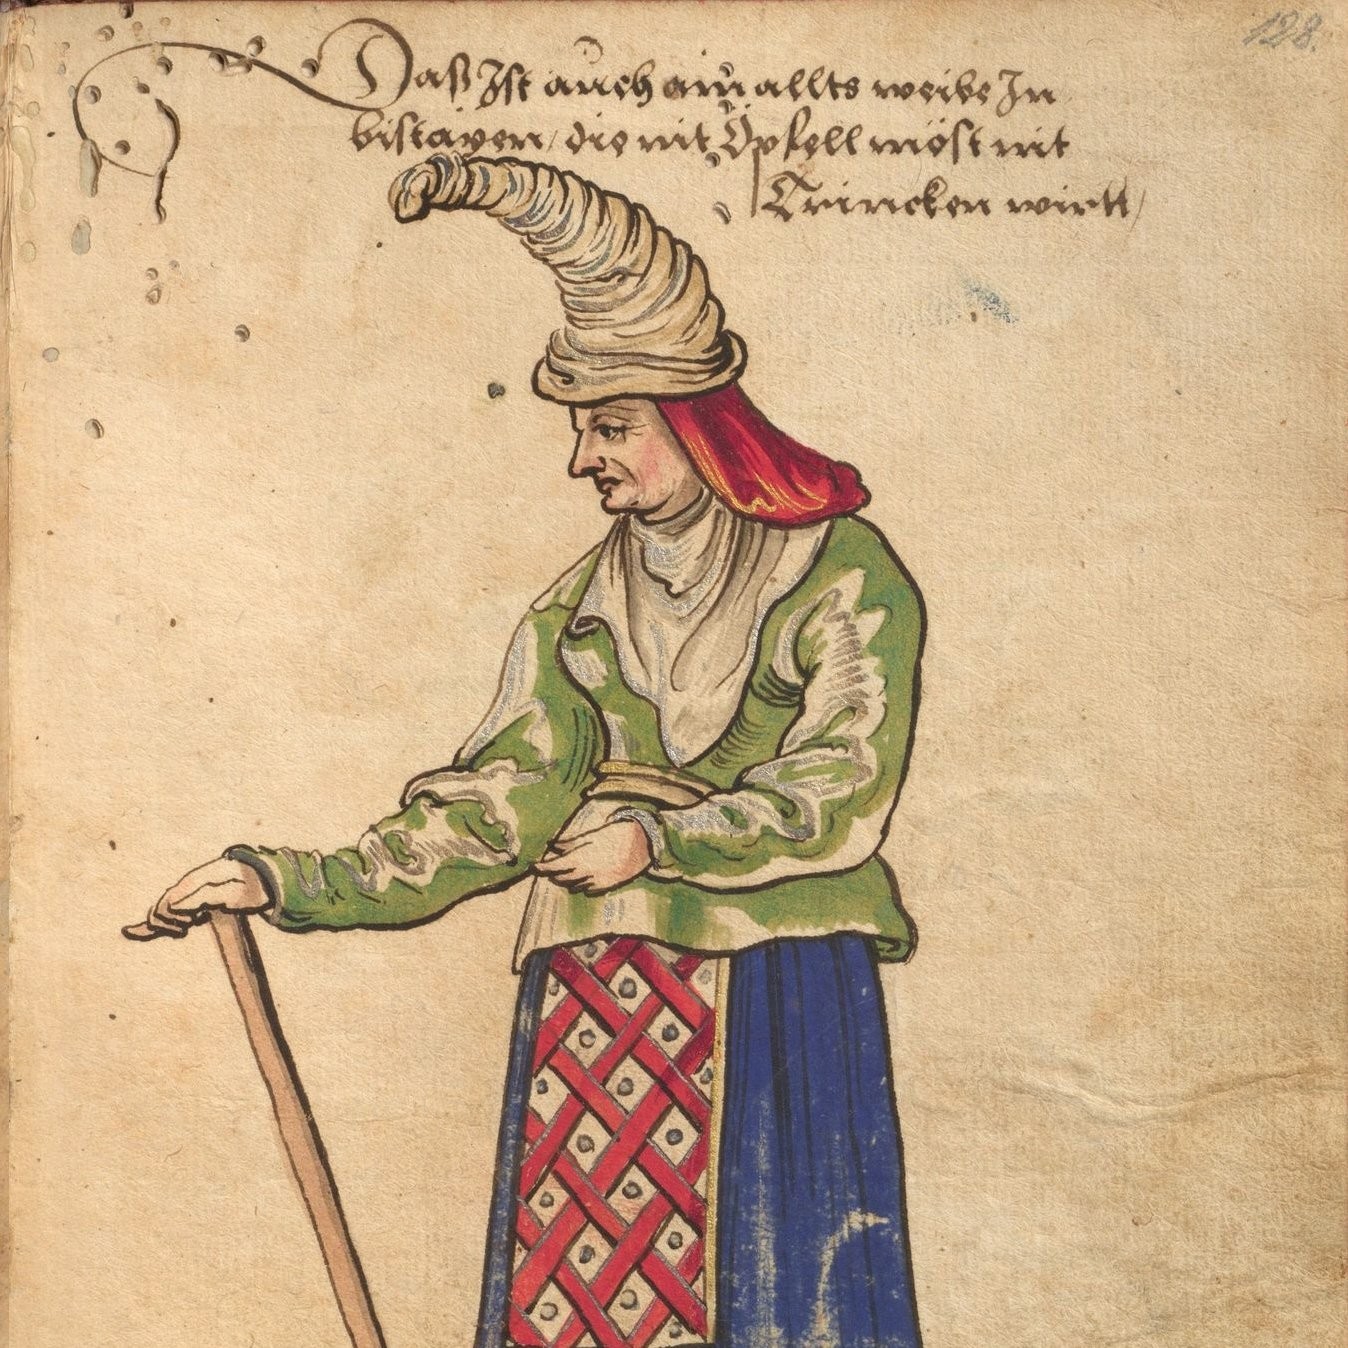 128.
Daß Ist auch ain allts weibe In
biscayen / die mit Öpfell möst nit
Trincken wirtt /